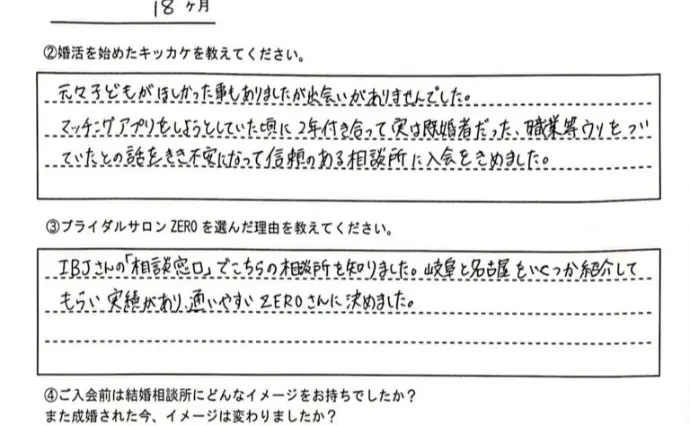 18ヶ月
②婚活を始めたキッカケを教えてください。
元々子どもがほしかった事もありましたが出会いがありませんでした。
マッチングアプリをしようとしていた頃に2年付き合って実は既婚者だった、職業等ウソをつい
ていたとの話をきき不安になって信頼のある相談所に入会をきめました。
③ブライダルサロン ZEROを選んだ理由を教えてください。
IBJさんの「相談窓口」でこちらの相談所を知りました。岐阜と名古屋をいくつか紹介して
もらい実績があり、通いやすいZEROさんに決めました。
④ご入会前は結婚相談所にどんなイメージをお持ちでしたか？
また成婚された今、イメージは変わりましたか？